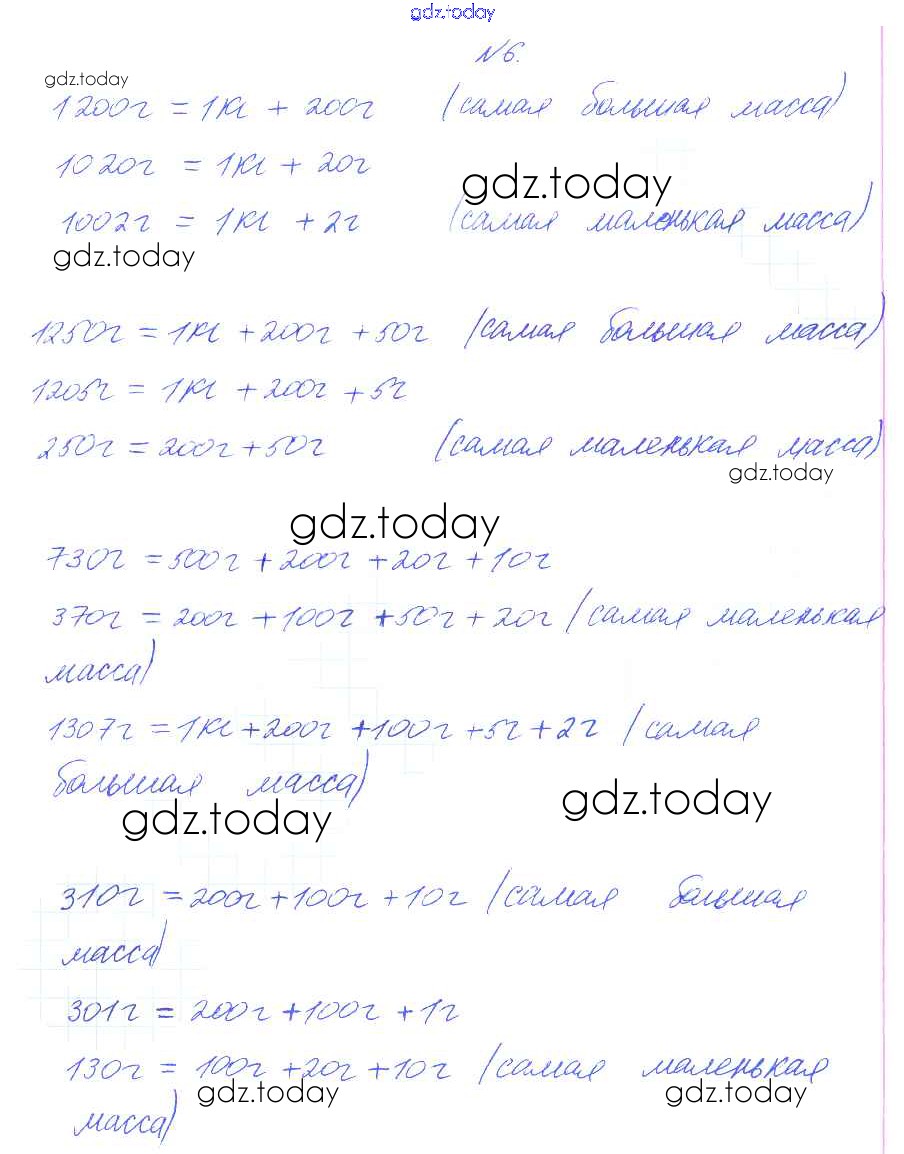 gdz.today
№6.
gdz.today
1200г = 1кг + 200г (самая большая масса)
1020г = 1кг + 20г
gdz.today
1002г = 1кг + 2г (самая маленькая масса)
gdz.today
1250г = 1кг + 200г + 50г (самая большая масса)
1205г = 1кг + 200г + 5г
250г = 200г + 50г (самая маленькая масса)
gdz.today
gdz.today
730г = 500г + 200г + 20г + 10г
370г = 200г + 100г + 50г + 20г (самая маленькая
масса)
1307г = 1кг + 200г + 100г + 5г + 2г (самая
большая масса)
gdz.today
gdz.today
310г = 200г + 100г + 10г (самая большая
масса)
301г = 200г + 100г + 1г
130г = 100г + 20г + 10г (самая маленькая
gdz.today gdz.today
масса)